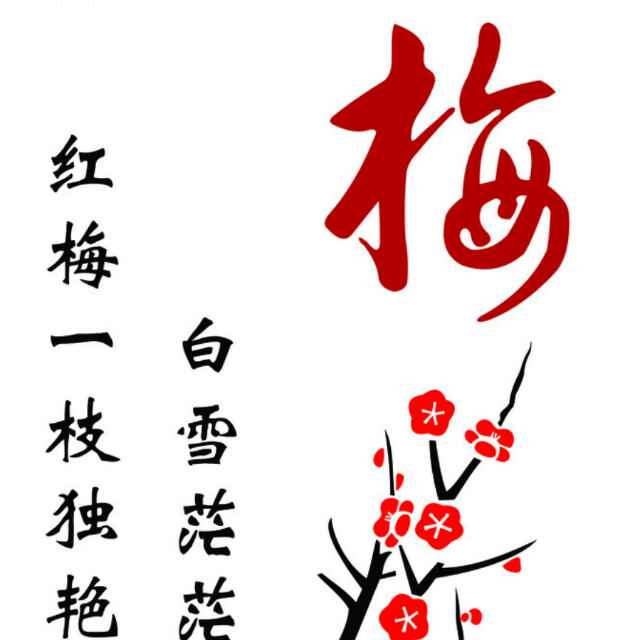 梅
白雪茫茫
红梅一枝独艳